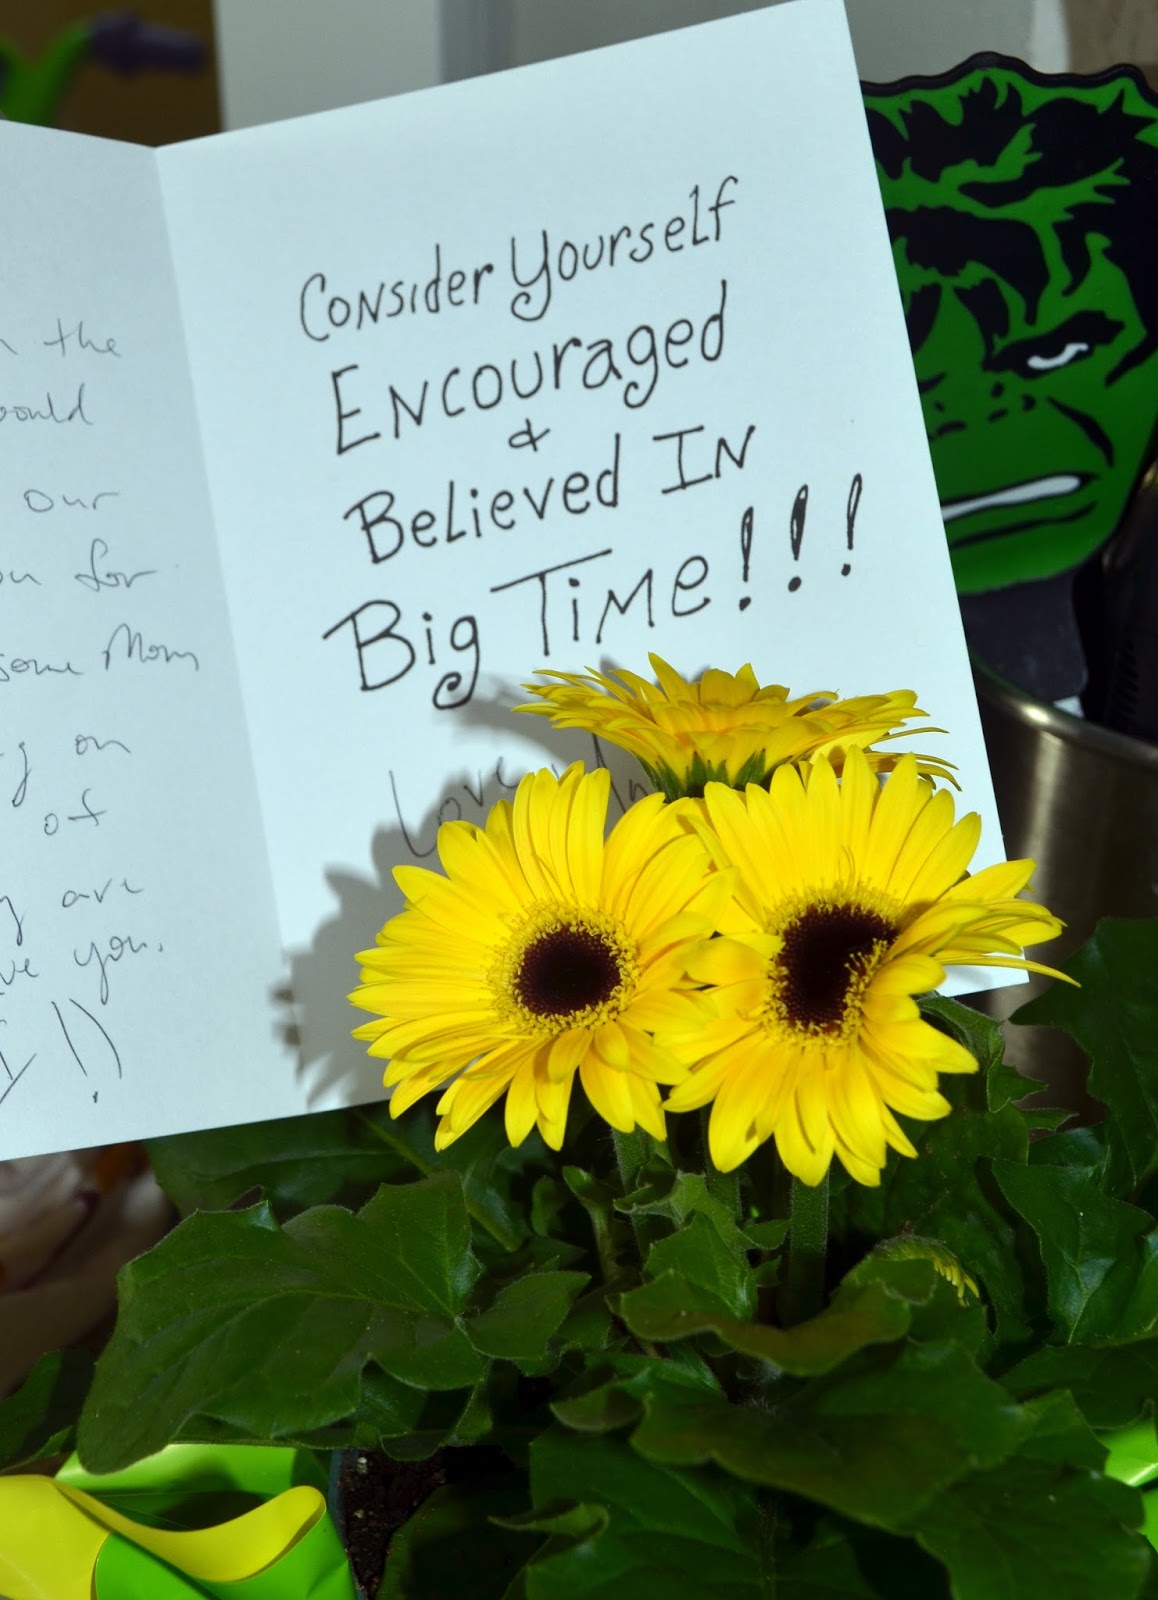 the
our
for
Mom
on
of
are
you.
Consider Yourself
Encouraged
&
Believed In
Big Time!!!
Love